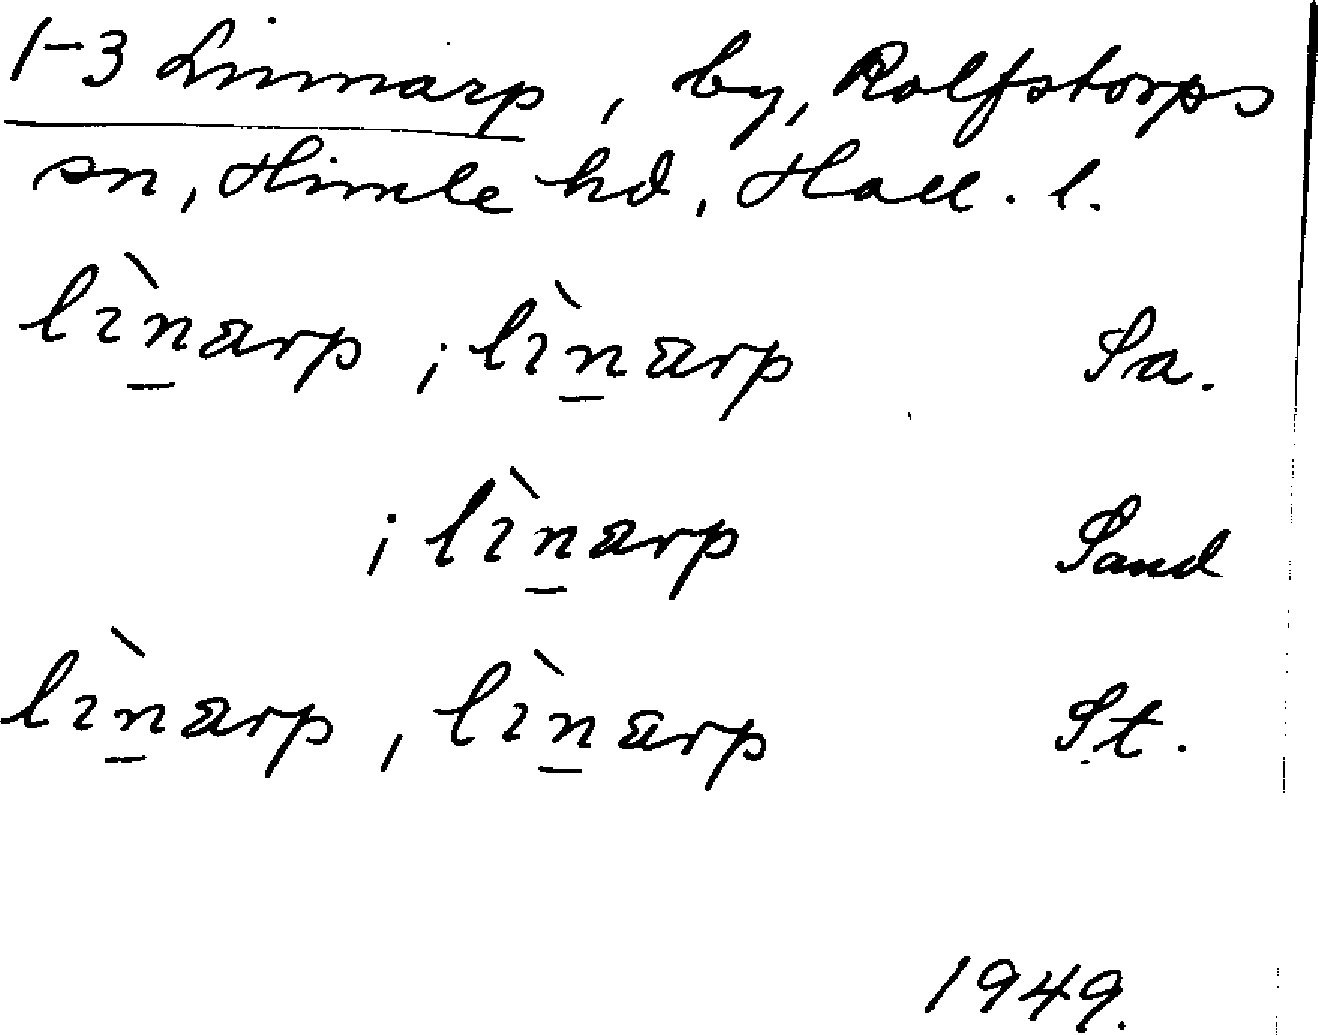 1-3 Linnarp, by, Rolfstorps
sn, Himle hd, Hall. l.
lìn̲arp ; lìn̲arp Sa.
; lìn̲arp Sand
lìn̲arp, lìn̲arp St.
1949.